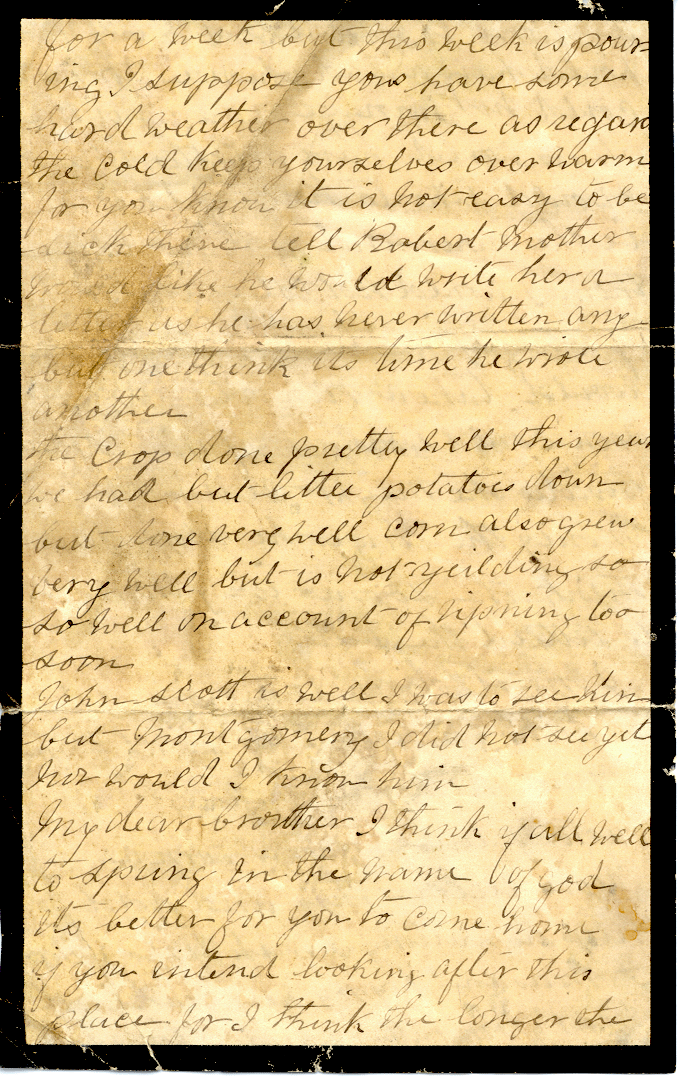 for a week but this week is pour-
ing I suppose yous have some
hard weather over there as regard
the cold keep yourselves over warm
for you know it is not easy to be
sick there tell Robert Mother
would like he would write her a
letter as he has never written any
but one think its time he wrote
another
the Crop done pretty well this year
we had but littee potatoes down
but done very well corn also grew
very well but is not yeilding so
so well on account of ripning too
soon
John scott is well I was to see him
but Montgomery I did not see yet
nor would I know him
My dear brouther I think if all well
to spring in the name of god
its better for you to come home
if you intend looking after this
place for I think the longer the